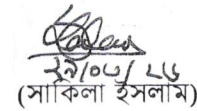 ২৯/০৬/২৬
(সাকিলা ইসলাম)